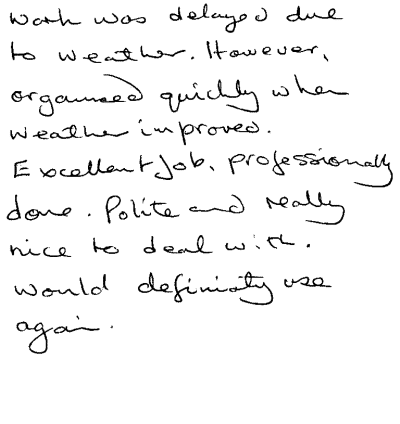 Work was delayed due
to weather. However,
organised quickly when
weather improved.
Excellent Job, professionally
done. Polite and really
nice to deal with.
Would definiaty use
again.